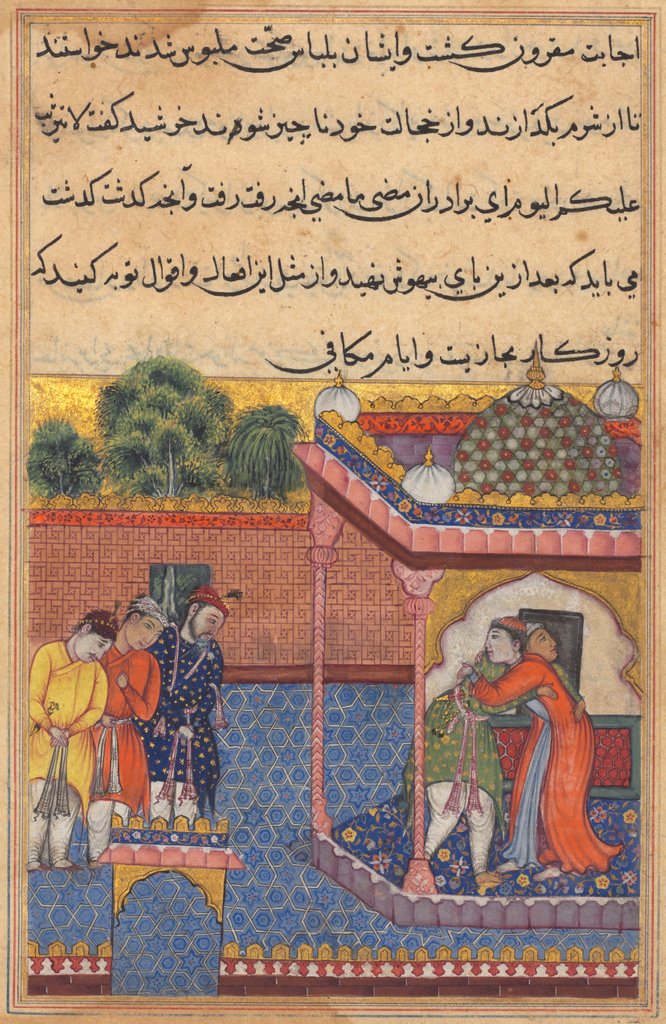 اجابت مقرون کشت وایشان بلباس صحّت ملبوس شدند خواستند
تا از شرم بکدازند و از خجالت خود ناچیز شوند خرشید کفت لا تثریب
علیکم الیوم ای برادران مضی ما مضی انچه رفت رفت وآنچه کدشت کدشت
می باید که بعد ازین پای بیهوش نهید و از مثل این افعال و اقوال توبه کنید که
روزکار مجازیت و ایام مکافی